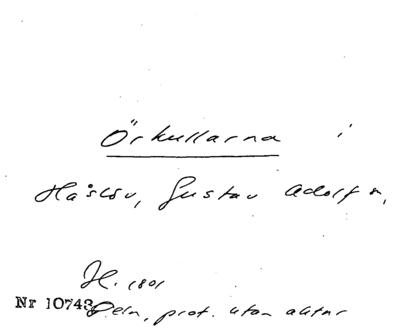 Örkullarna i
Håslöv, Gustav Adolf s,
H. 1801
Nr 10743 Deln, prot. utan aktnr